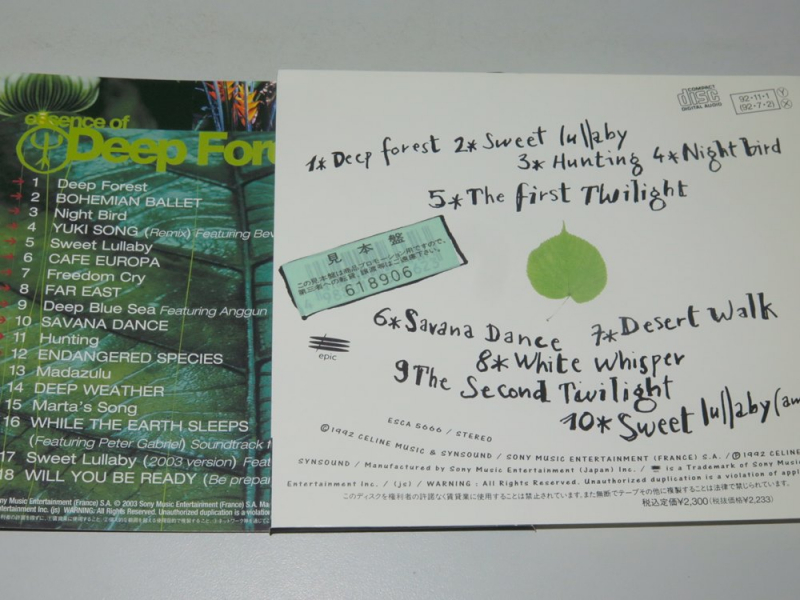 essence of
Deep Fore
1 Deep Forest
2 BOHEMIAN BALLET
3 Night Bird
4 YUKI SONG (Remix) Featuring Bev
5 Sweet Lullaby
6 CAFE EUROPA
7 Freedom Cry
8 FAR EAST
9 Deep Blue Sea Featuring Anggun
10 SAVANA DANCE
11 Hunting
12 ENDANGERED SPECIES
13 Madazulu
14 DEEP WEATHER
15 Marta's Song
16 WHILE THE EARTH SLEEPS
(Featuring Peter Gabriel) Soundtrack
17 Sweet Lullaby (2003 version) Feat
18 WILL YOU BE READY (Be prepar
Sony Music Entertainment (France) S.A. © 2003 Sony Music Entertainment (France) S.A. Ma
Entertainment Inc. (js) WARNING: All Rights Reserved. Unauthorized duplication is a violation
COMPACT
disc
DIGITAL AUDIO
92・11・1
(92・7・2)
Y
X
1* Deep forest 2* Sweet lullaby
3* Hunting 4* Night Bird
5* The first Twilight
見本盤
この見本盤は商品プロモーション用ですので、
第三者への転貸、譲渡等はご遠慮下さい。
618906
6* Savana Dance 7* Desert Walk
8* White Whisper
9 The Second Twilight
10* Sweet lullaby (am
epic
ESCA 5666 / STEREO
©1992 CELINE MUSIC & SYNSOUND / SONY MUSIC ENTERTAINMENT (FRANCE) S.A. / ℗ 1992 CELINE
SYNSOUND / Manufactured by Sony Music Entertainment (Japan) Inc. / is a Trademark of Sony Music
Entertainment Inc. / (js) / WARNING : All Rights Reserved. Unauthorized duplication is a violation of appl
このディスクを権利者の許諾なく賃貸業に使用することは禁止されています。また無断でテープその他に複製することは法律で禁じられています。
税込定価¥2,300(税抜価格¥2,233)